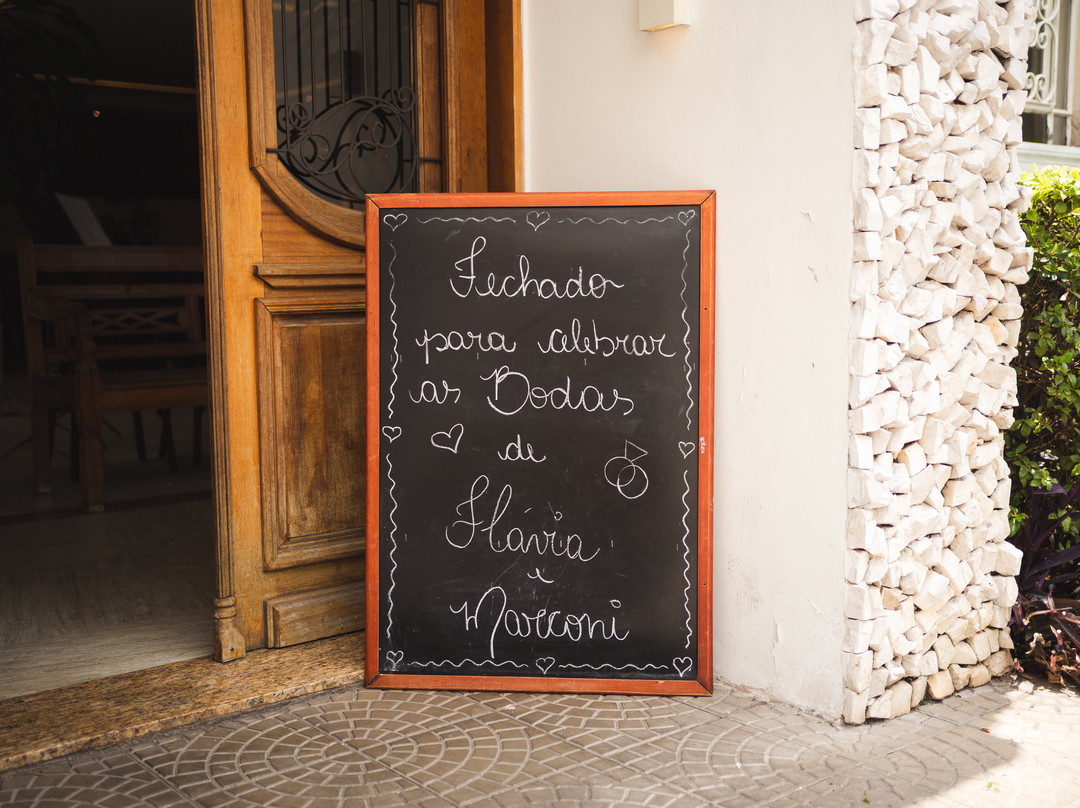 Fechado
para celebrar
as Bodas
de
Flávia
e
Marconi